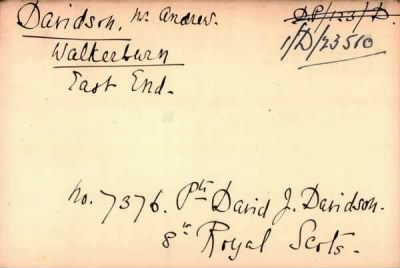 Davidson, Mr Andrew.
D.P/123/D.
1/D/23510
Walkerburn
East End.
No. 7376. Pte David J. Davidson.
8th Royal Scots.